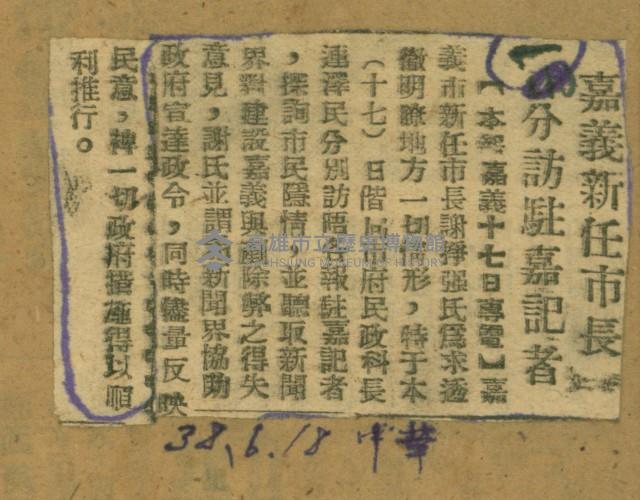 嘉義新任市長
分訪駐嘉記者
【本報嘉義十七日專電】嘉
義市新任市長謝掙强氏爲求透
徹明瞭地方一切情形,特于本
(十七)日偕同市府民政科長
連澤民分別訪晤各報駐嘉記者
,探詢市民隱情,並聽取新聞
界對建設嘉義與革除弊之得失
意見,謝氏並謂:新聞界協助
政府宣達政令,同時儘量反映
民意,轉一切政府措施得以順
利推行。
38.6.18 中華
高雄市立歷史博物館
KAOHSIUNG MUSEUM OF HISTORY